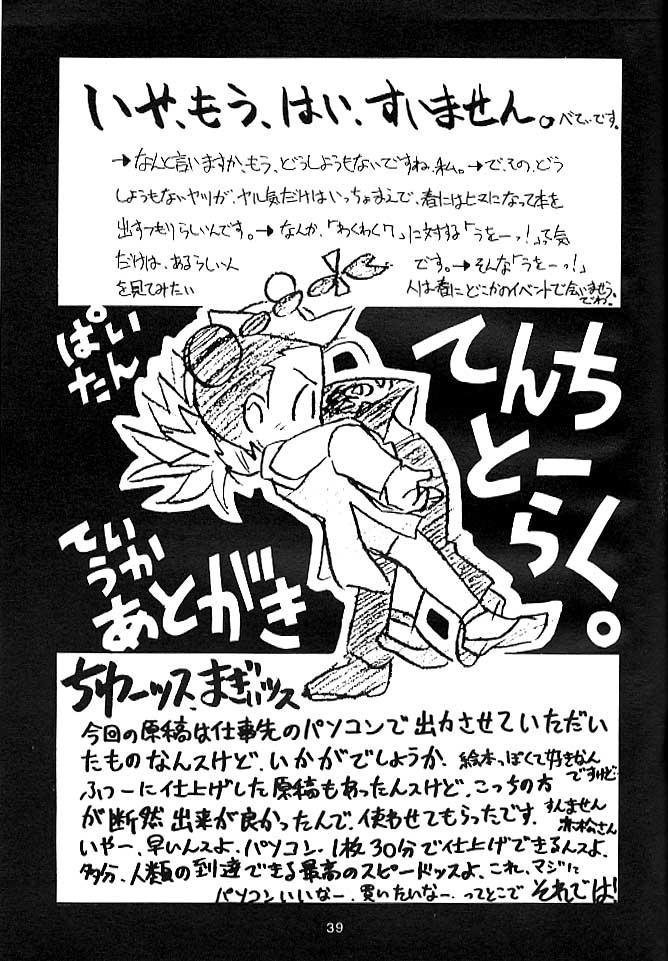 いや、もう、はい、すいません。べてぃです。
→なんと言いますか、もう、どうしようもないですね、私。→で、その、どう
しようもないヤツが、ヤル気だけはいっちょまえで、春にはヒマになって本を
出すつもりらしいんです。→なんか、「わくわく7」に対する「うをーっ!」って気
だけは、あるらしい人です。→そんな「うをーっ!」
を見てみたい人は春にどこかのイベントで会いませう。
でわ。
ぱい
たん
てんち
とーく
らく。
ていうか
あとがき
ちゅーッス、まぎぃッス
今回の原稿は仕事先のパソコンで出力させていただい
たものなんスけど、いかがでしょうか。絵本っぽくて好きなん
ですけど…
ふつーに仕上げした原稿もあったんスけど、こっちの方
が断然出来が良かったんで、使わせてもらったです。すんません
赤松さん
いやー、早いんスよ、パソコン。1枚30分で仕上げできるんスよ、
多分、人類の到達できる最高のスピードッスよ、これ、マジに
パソコンいいなー、買いたいなー、ってとこで それでは!
39